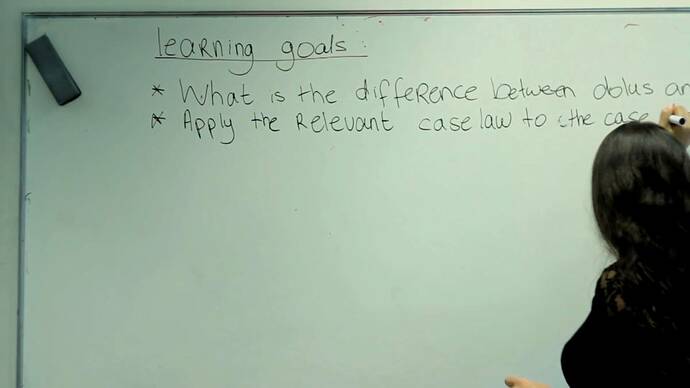 learning goals :
* What is the difference between dolus an
* Apply the relevant case law to the case